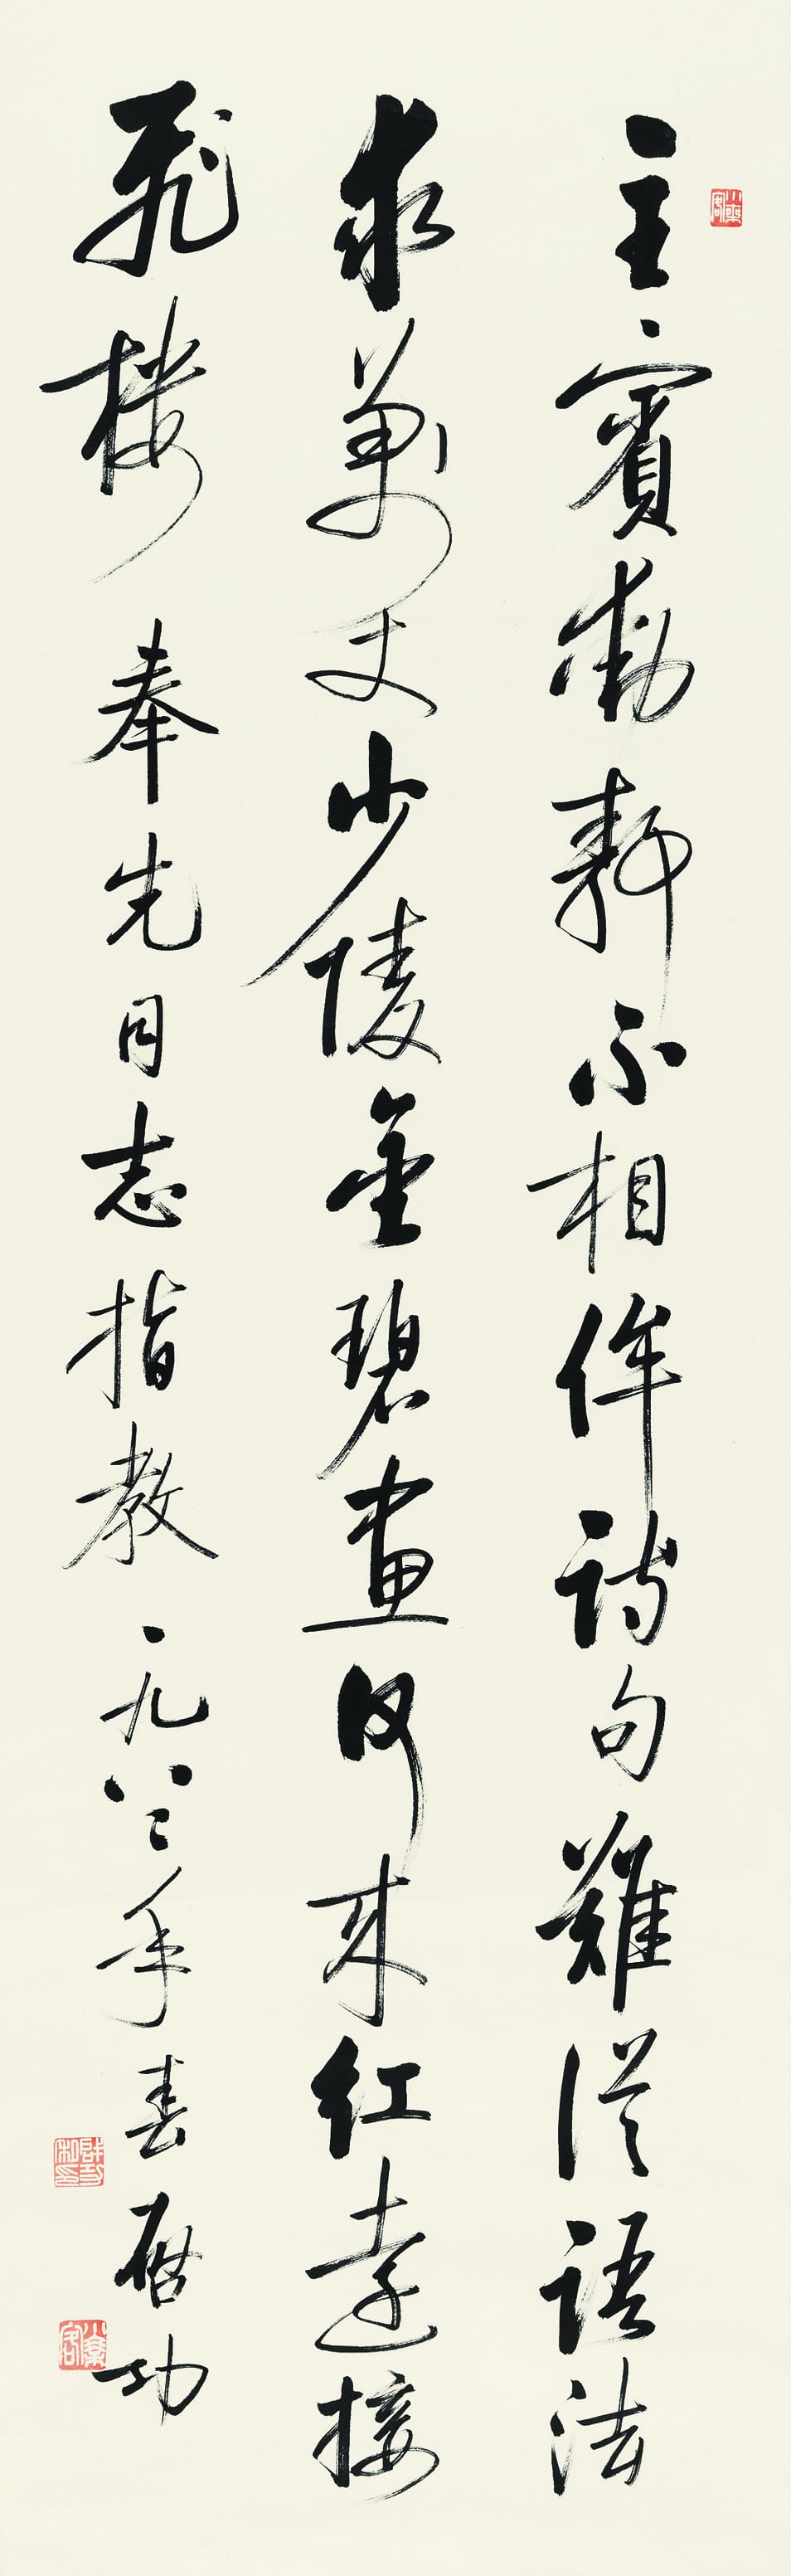 主賓動靜不相侔詩句難從語法
求萬丈少陵金碧畫何來紅遠接
飛樓 奉先同志指教 一九八二年春 啟功